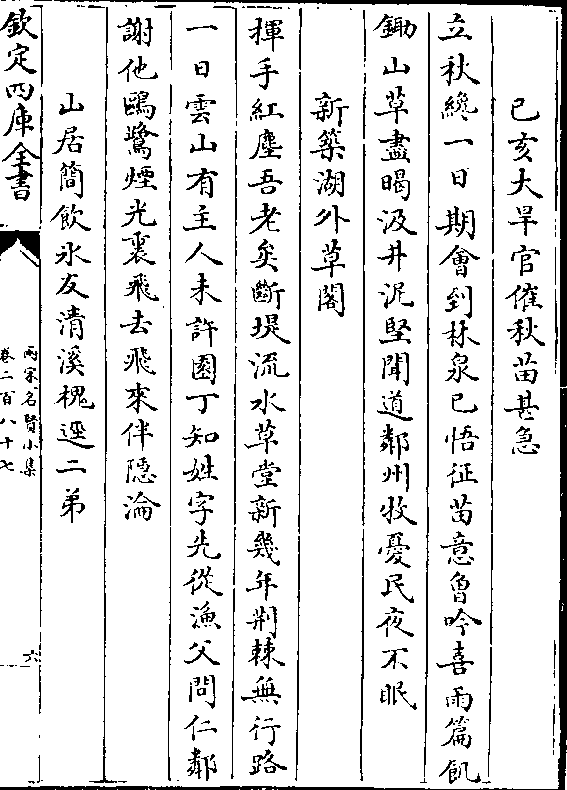 己亥大旱官催秋苗甚急
立秋纔一日期會到林泉已悟征苗意曾吟喜雨篇飢
鋤山草盡暍汲井泥堅聞道鄰州牧憂民夜不眠
新築湖外草閣
揮手紅塵吾老矣斷堤流水草堂新幾年荆棘無行路
一日雲山有主人未許園丁知姓字先從漁父問仁鄰
謝他鷗鷺煙光裏飛去飛來伴隱淪
山居簡飲氷友清溪槐逕二弟
欽定四庫全書
兩宋名賢小集
卷二百八十七
六